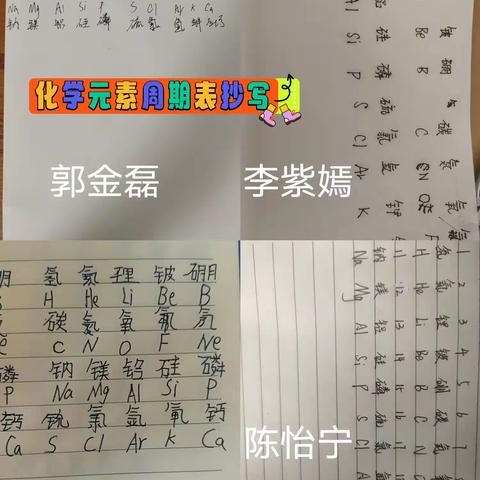 Na Mg Al Si P S Cl Ar K Ca
钠 镁 铝 硅 磷
化学元素周期表抄写
郭金磊
李紫嫣
铍 硼 碳
Be B C N
硅 磷 硫 氯 氩 钾
Al Si P S Cl Ar K
氢 氦 锂 铍 硼
H He Li Be B
碳 氮 氧 氟 氖
C N O F Ne
磷 钠 镁 铝 硅 磷
P Na Mg Al Si P
钙 氯 氩 钙
Ca S Cl Ar K Ca
1 2 3 4 5 6 7
氢 氦 锂 铍 硼 碳 氮
H He Li Be B C N
11 12 13 14 15 16 17
钠 镁 铝 硅 磷 硫 氯
Na Mg Al Si P S Cl
陈怡宁